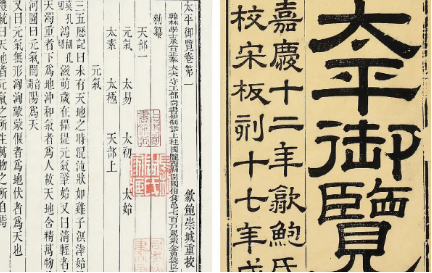 太平御覽
嘉慶十二年歙鮑氏
校宋板刻十七年成
太平御覽卷第一
歙鮑崇城重校
天部一
元氣 太易 太初 太始
太素 太極 天部上
元氣
三五歷記曰未有天地之時混沌狀如雞子溟涬始
歲在攝提元氣肇始又曰清輕者
天濁重者下為地沖和氣者為人故天地含精萬物
河圖曰元氣闓陽為天
又曰元氣無形洶洶蒙蒙偃者為地伏者為天也
禮統曰天地者元氣之所生萬物之所自焉